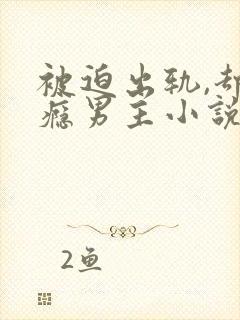 被迫出轨,却
瘾男主小説
2鱼